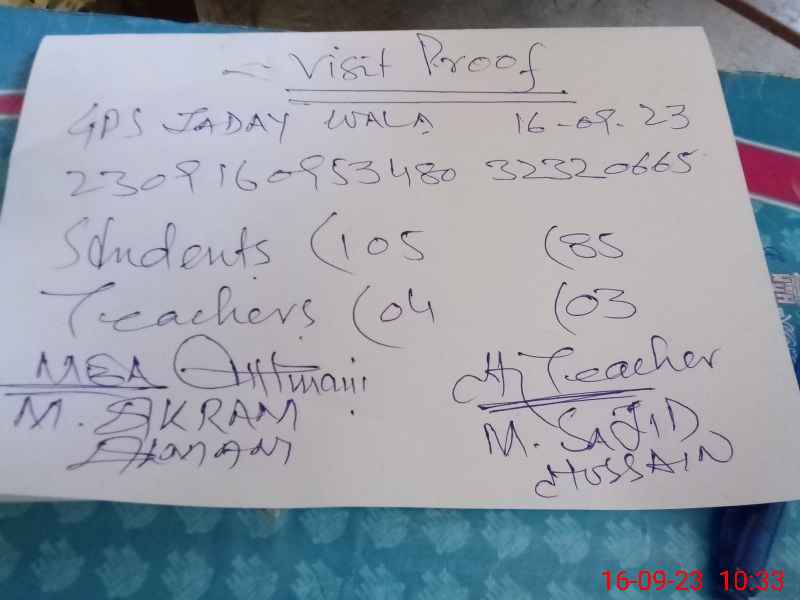 Visit Proof
GPS JADAY WALA 16-09-23
2309160953480 32320665
Students (105 (85
Teachers (04 (03
MEA H/Teacher
M. IKRAM M. SAJID
HUSSAIN
16-09-23 10:33